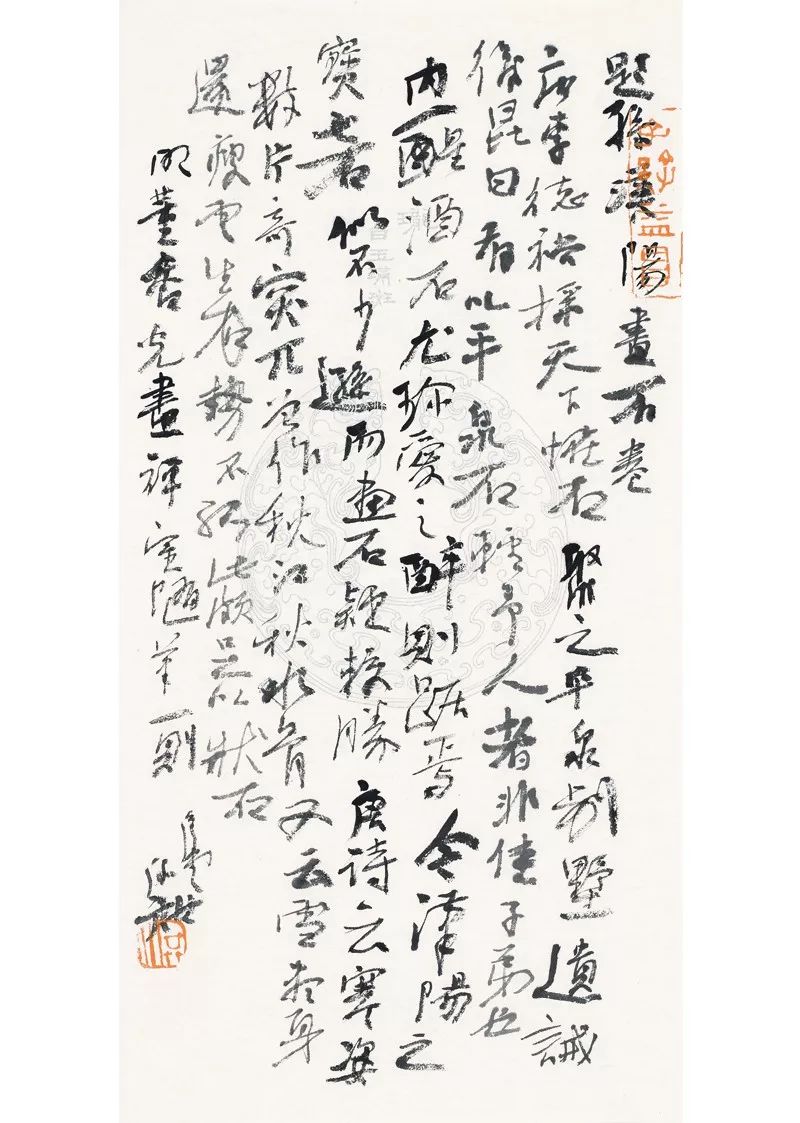 題孫漢陽畫石卷
唐李德裕採天下怪石聚之平泉別墅遺誡
後昆曰有以平泉石輕予人者非佳子弟也
內一醒酒石尤珍愛之醉則踞焉今漢陽之
寶者似不少遜而畫石疑較勝唐詩云寒姿
數片奇突兀曾作秋江秋水骨又云雪盡身
還瘦雲生勢不孤此頗足以狀石
明董香光畫禪室隨筆一則